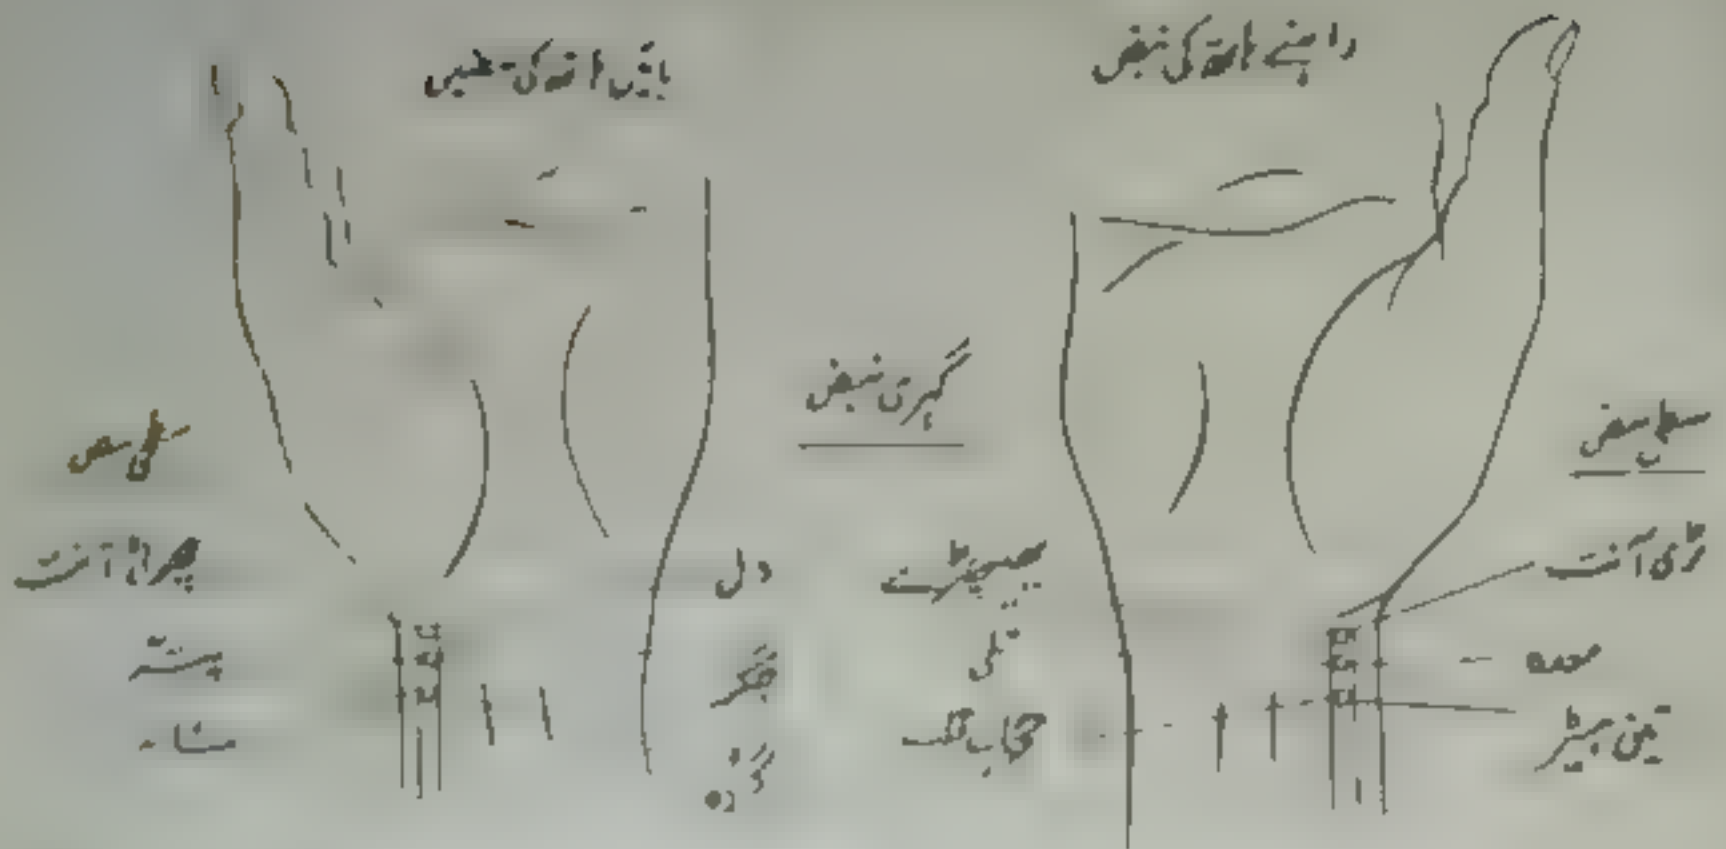 داہنے ہاتھ کی نبض
بائیں ہاتھ کی
گہری نبض
سطحی نبض
بڑی آنت
معدہ
تین ہیٹر
پھیپھڑے
تلی
حجاب قلب
دل
جگر
گردہ
سطحی نبض
چھوٹی آنت
پتہ
مثانہ